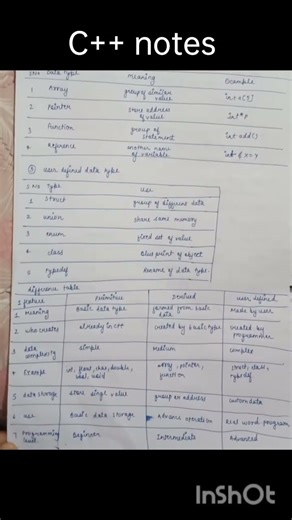 C++ notes
S.no Data Type Meaning Example
1 Array group of similar value int a[5]
2 Pointer store address of value int *P
3 Function group of statement int add()
4 Reference another name of variable int & x = y
③ User defined data type
S.no Type Use
1 Struct group of different data
2 union share same memory
3 enum fixed set of value
4 class blue print of object
5 Typedef Rename of data type
difference table
S feature Primitive Derived user defined
1 Meaning Basic data type formed from basic data Made by user
2 who creates already in C++ created by basic type created by programmer
3 data complexity simple Medium complex
4 Example int, float, char, double, bool, void array, pointer, function struct, class, typedef
5 data storage store single value group or address custom data
6 use Basic data storage Advance operation Real word program
7 Programming level Beginner Intermediate Advanced
InShOt